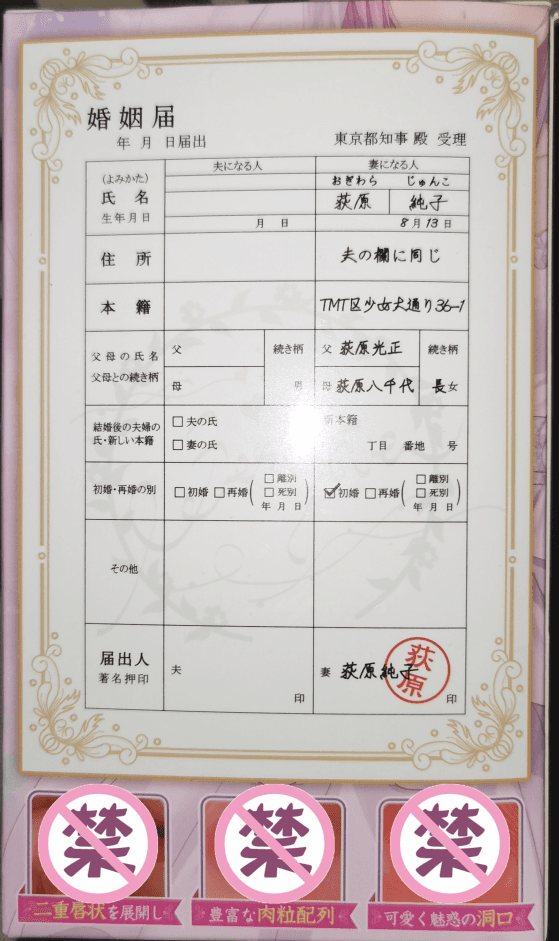 婚姻届
年 月 日届出
東京都知事 殿 受理
夫になる人
妻になる人
(よみかた)
氏名
生年月日
おぎわら じゅんこ
荻原 純子
月 日
8月13日
住所
夫の欄に同じ
本籍
TMT区少女犬通り36-1
父母の氏名
父母との続き柄
父
続き柄
父 荻原光正
続き柄
母
男
母 荻原八千代
長女
結婚後の夫婦の
氏・新しい本籍
夫の氏
妻の氏
新本籍
丁目 番地 号
初婚・再婚の別
初婚 再婚 (離別 死別 年 月 日)
初婚 再婚 (離別 死別 年 月 日)
その他
届出人
著名押印
夫
印
妻 荻原純子
荻原
印
禁
禁
禁
二重唇状を展開し
豊富な肉粒配列
可愛く魅惑の洞口